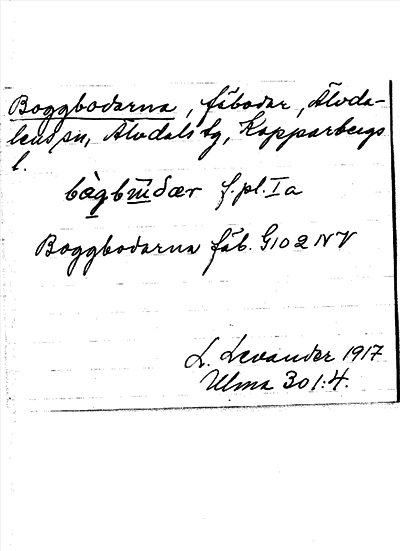 Boggbodarna, fäbodar, Älvda-
lens sn, Älvdals tg, Kopparbergs
l.
bàgbɯ̄dær f.pl. Ia
Boggbodarna fäb. G102 NV
L. Levander 1917
Ulma 301:4.